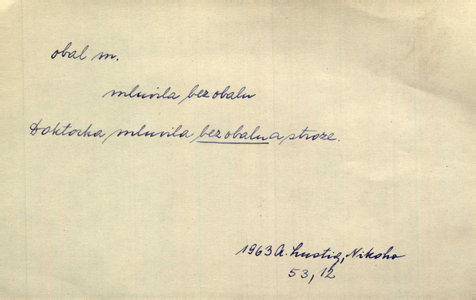 obal m.
mluvila bez obalu
Doktorka mluvila bez obalu a stroze.
1963 A. Lustig, Nikoho
53, 12